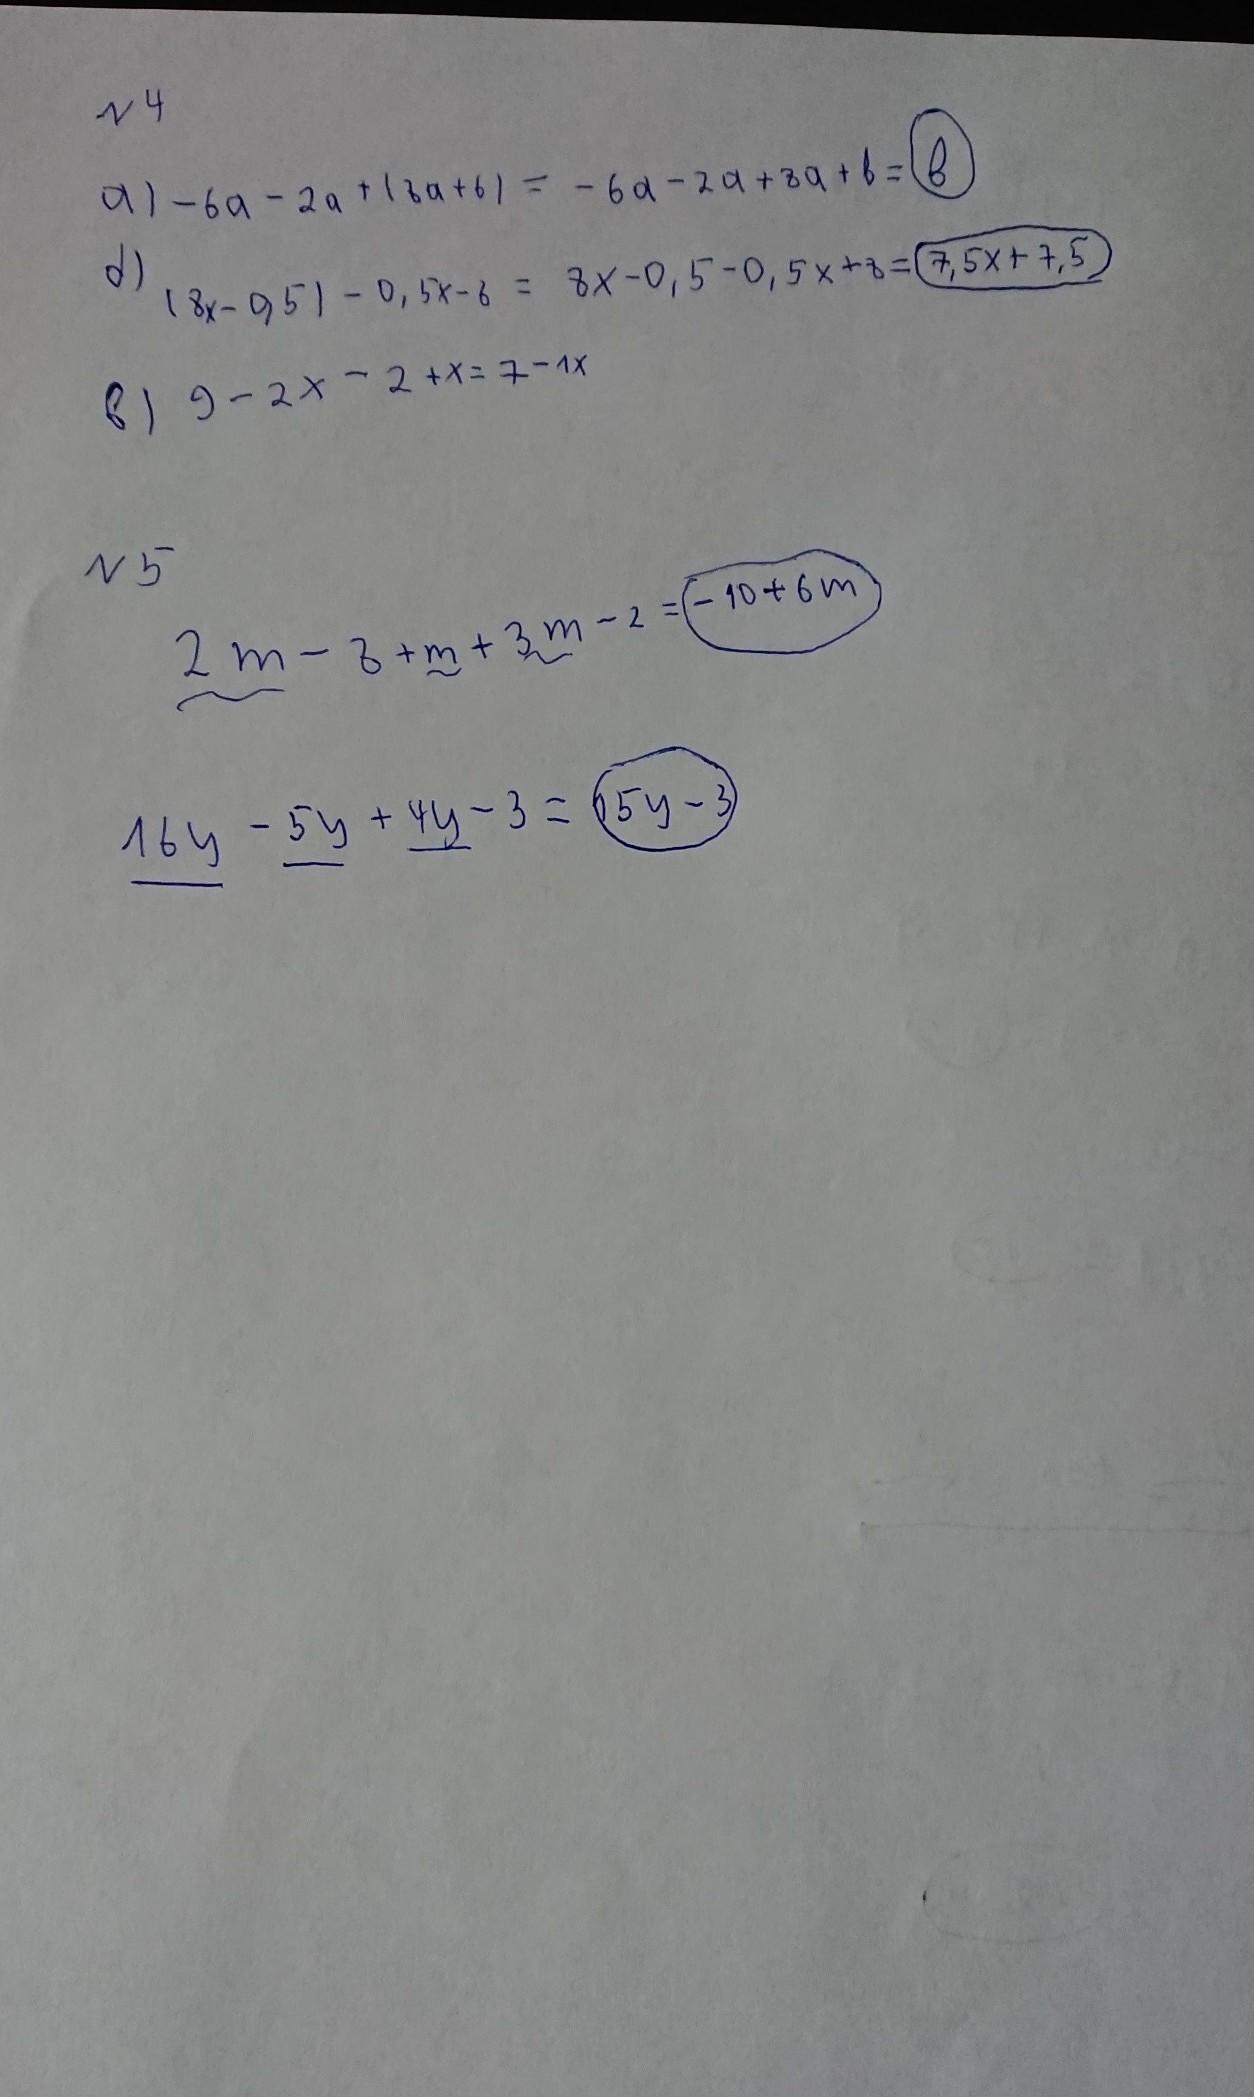 N4
а) -6a - 2a + (8a + b) = -6a - 2a + 8a + b = b
д) (8x - 0,5) - 0,5x - 8 = 8x - 0,5 - 0,5x + 8 = 7,5x + 7,5
в) 9 - 2x - 2 + x = 7 - 1x
N5
2m - 8 + m + 3m - 2 = -10 + 6m
16y - 5y + 4y - 3 = 15y - 3